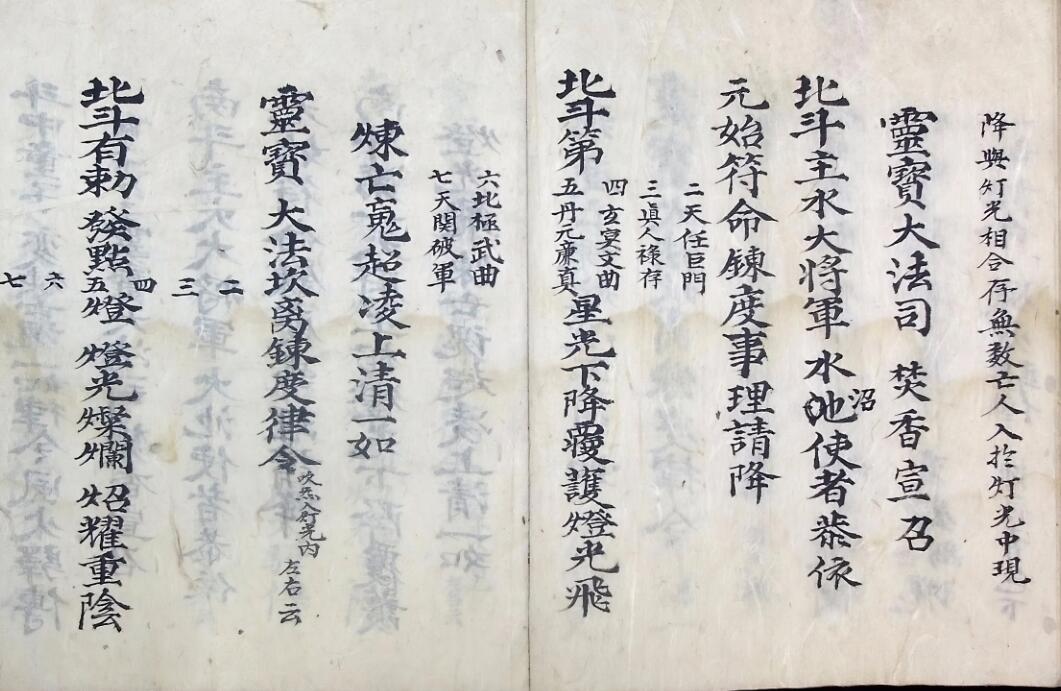 降與灯光相合存無数亡人入於灯光中現下
靈寶大法司 焚香宣召
北斗主水大将軍水池使者恭依
沼
元始符命錬度事理請降
二天任巨門
三眞人禄存
北斗第四玄㝠文曲
五丹元廉真
星光下降覆護燈光飛
六北極武曲
七天関破軍
煉亡䰟超凌上清一如
靈寶大法坎离錬度律令
吹炁入灯光内
左右云
北斗有勅發點燈燈光燦爛炤耀重陰
二
三
四
五
六
七